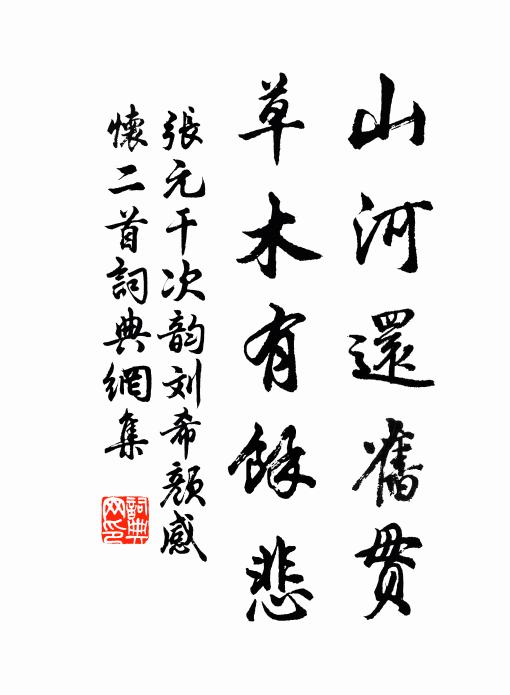 山河還舊貫
草木有餘悲
張元干次韵刘希颜感
懷二首詞典網集
詞典网印